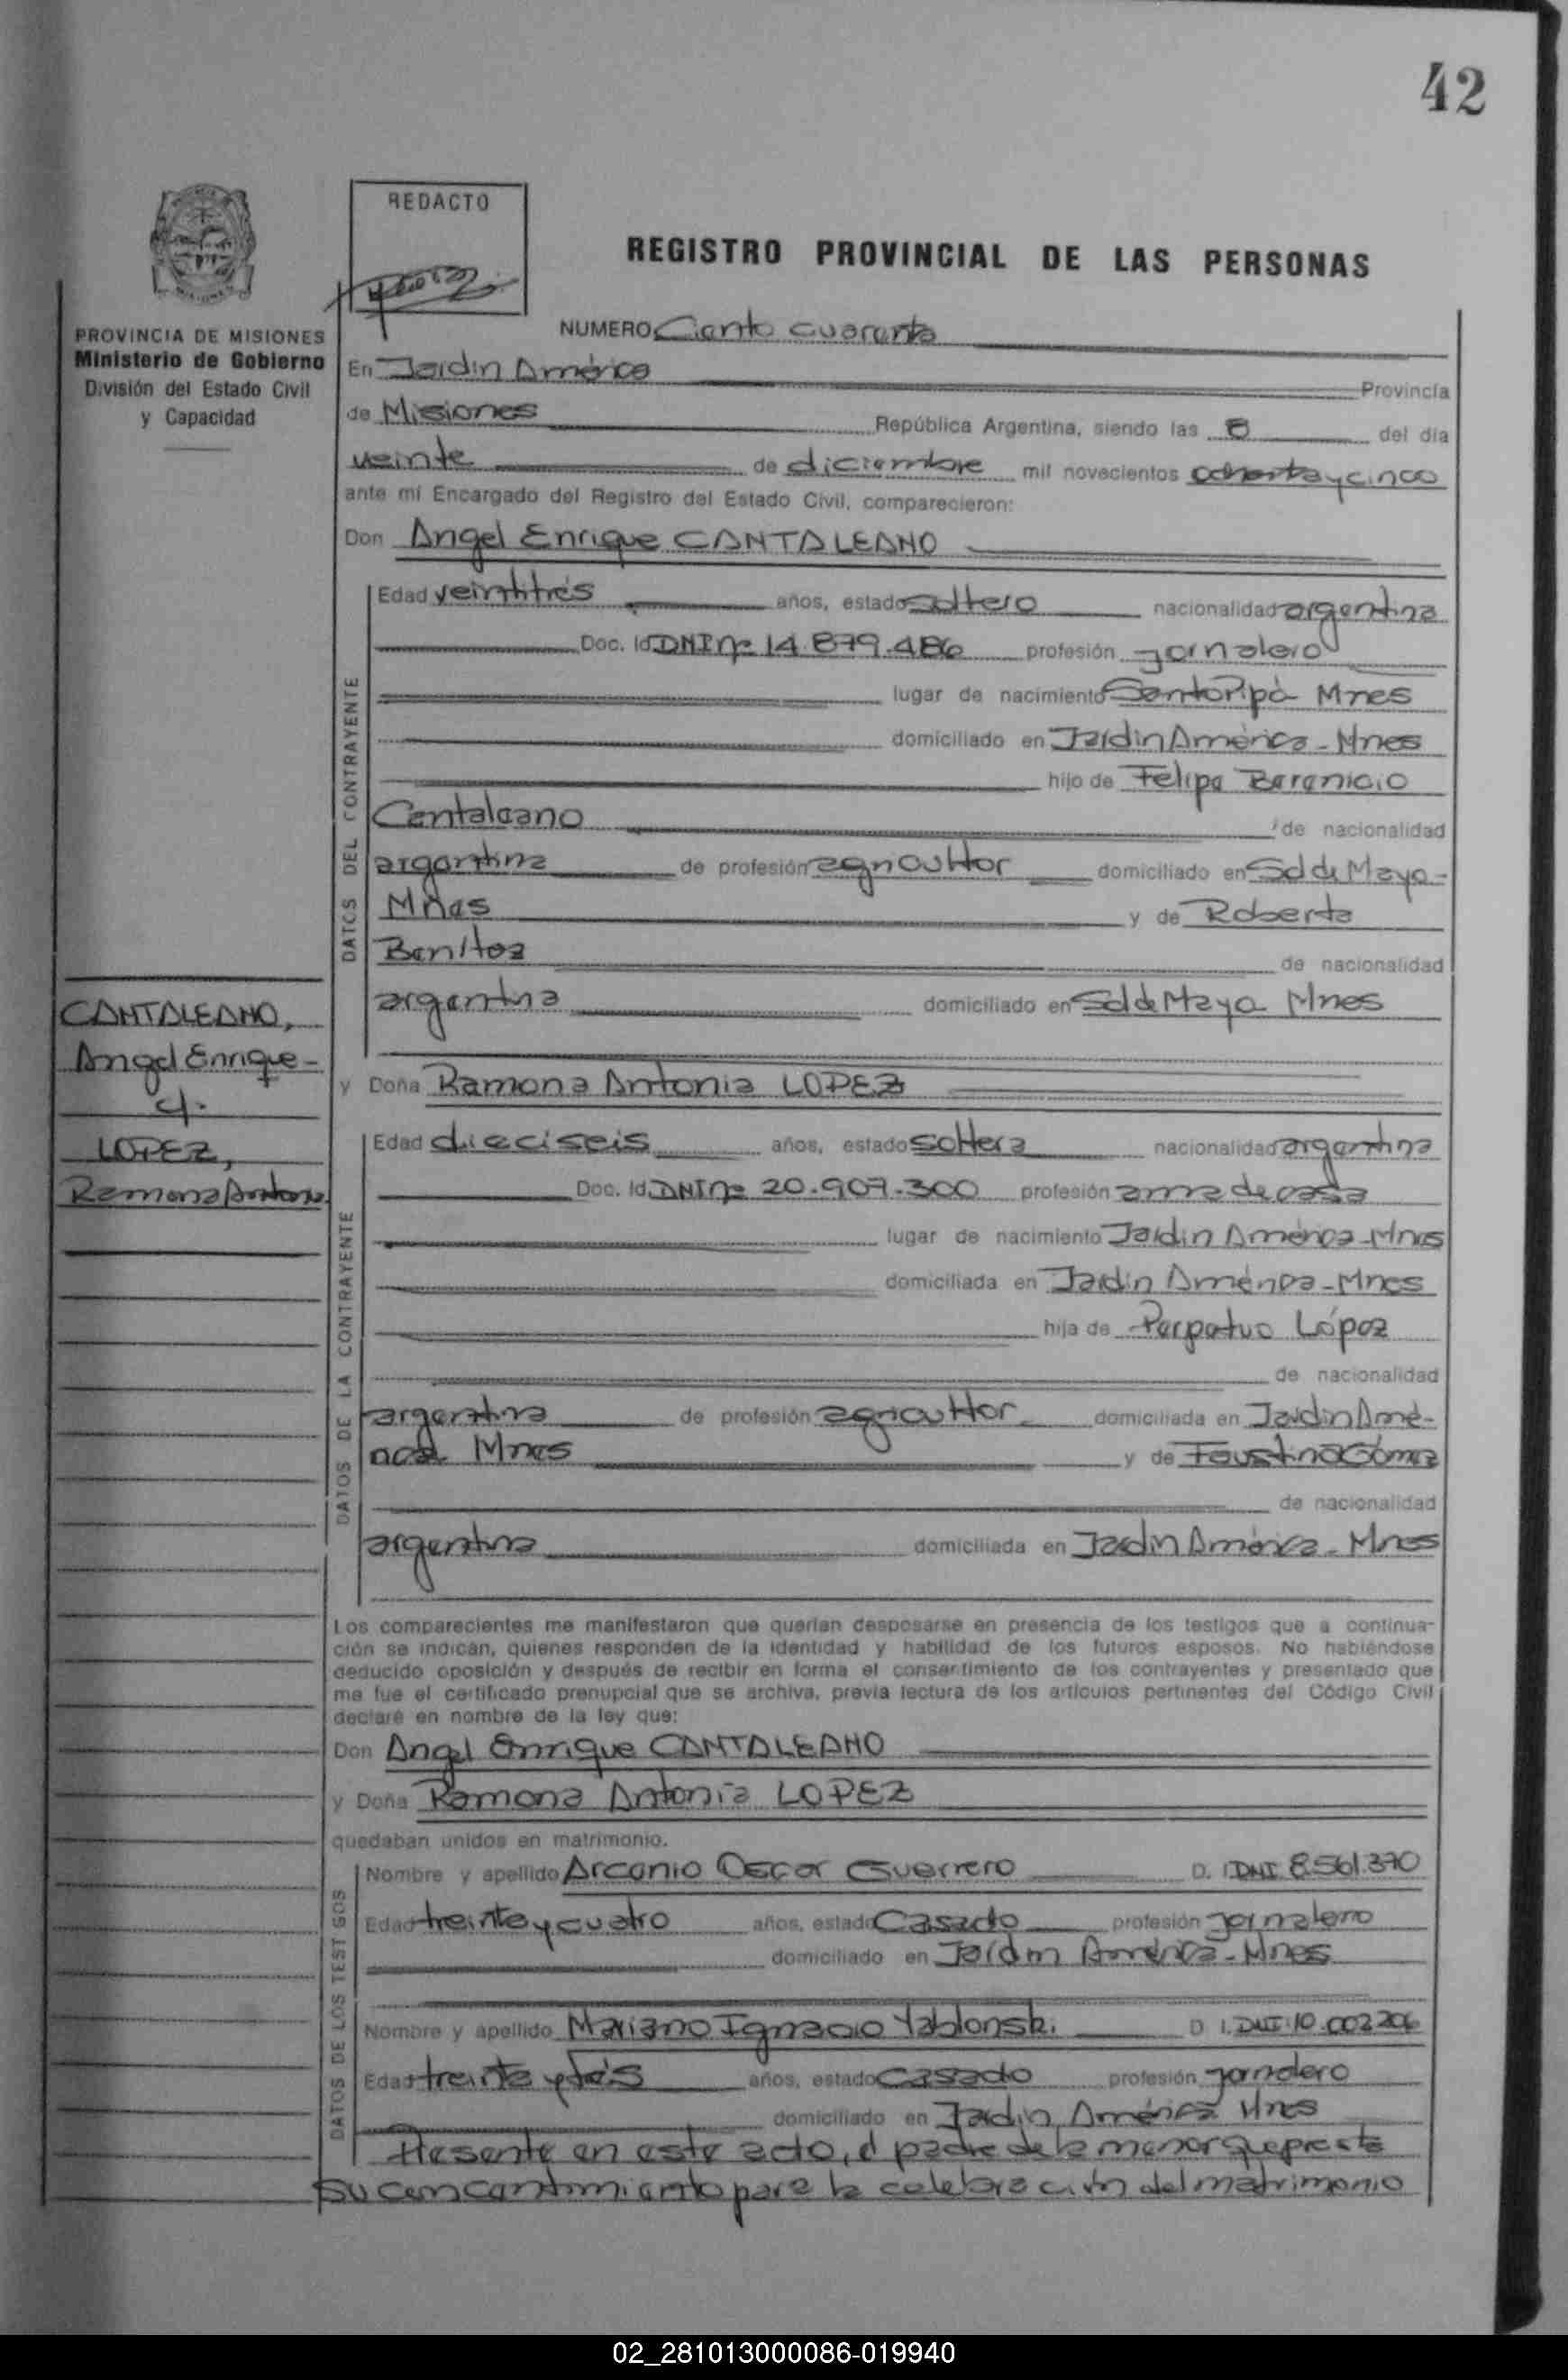 42
REDACTO
REGISTRO PROVINCIAL DE LAS PERSONAS
PROVINCIA DE MISIONES
Ministerio de Gobierno
División del Estado Civil
y Capacidad
NUMERO Ciento cuarenta
En Jardín América Provincia
de Misiones República Argentina, siendo las 8 del día
veinte de diciembre mil novecientos ochenta y cinco
ante mí Encargado del Registro del Estado Civil, comparecieron:
Don Angel Enrique CANTALEANO
DATOS DEL CONTRAYENTE
Edad veintitrés años, estado soltero nacionalidad argentina
Doc. Id. DNI nº 14.879.486 profesión jornalero
lugar de nacimiento Santo Pipó Mnes
domiciliado en Jardín América - Mnes
hijo de Felipe Berenicio
Cantaleano de nacionalidad
argentina de profesión agricultor domiciliado en Sol de Mayo -
Mnes y de Roberta
Benitez de nacionalidad
argentina domiciliado en Sol de Mayo Mnes
CANTALEANO,
Angel Enrique -
c/.
LOPEZ,
Ramona Antonia
y Doña Ramona Antonia LOPEZ
DATOS DE LA CONTRAYENTE
Edad dieciseis años, estado soltera nacionalidad argentina
Doc. Id. DNI nº 20.907.300 profesión ama de casa
lugar de nacimiento Jardín América - Mnes
domiciliada en Jardín América - Mnes
hija de Perpetuo López
de nacionalidad
argentina de profesión agricultor domiciliada en Jardín Amé-
rica Mnes y de Faustina Gómez
de nacionalidad
argentina domiciliada en Jardín América - Mnes
Los comparecientes me manifestaron que querían desposarse en presencia de los testigos que a continua-
ción se indican, quienes responden de la identidad y habilidad de los futuros esposos. No habiéndose
deducido oposición y después de recibir en forma el consertimiento de los contrayentes y presentado que
me fue el certificado prenupcial que se archiva, previa lectura de los artículos pertinentes del Código Civil
declaré en nombre de la ley que:
Don Angel Enrique CANTALEANO
y Doña Ramona Antonia LOPEZ
quedaban unidos en matrimonio.
DATOS DE LOS TESTIGOS
Nombre y apellido Arcenio Oscar Guerrero D. I. DNI 8.561.370
Edad treinta y cuatro años, estado Casado profesión jornalero
domiciliado en Jardín América - Mnes
Nombre y apellido Mariano Ignacio Yablonski D. I. DNI 10.002.206
Edad treinta y tres años, estado Casado profesión jornalero
domiciliado en Jardín América Mnes
Presente en este acto, el padre de la menor que presta
su concentimiento para la celebración del matrimonio
02_281013000086-019940